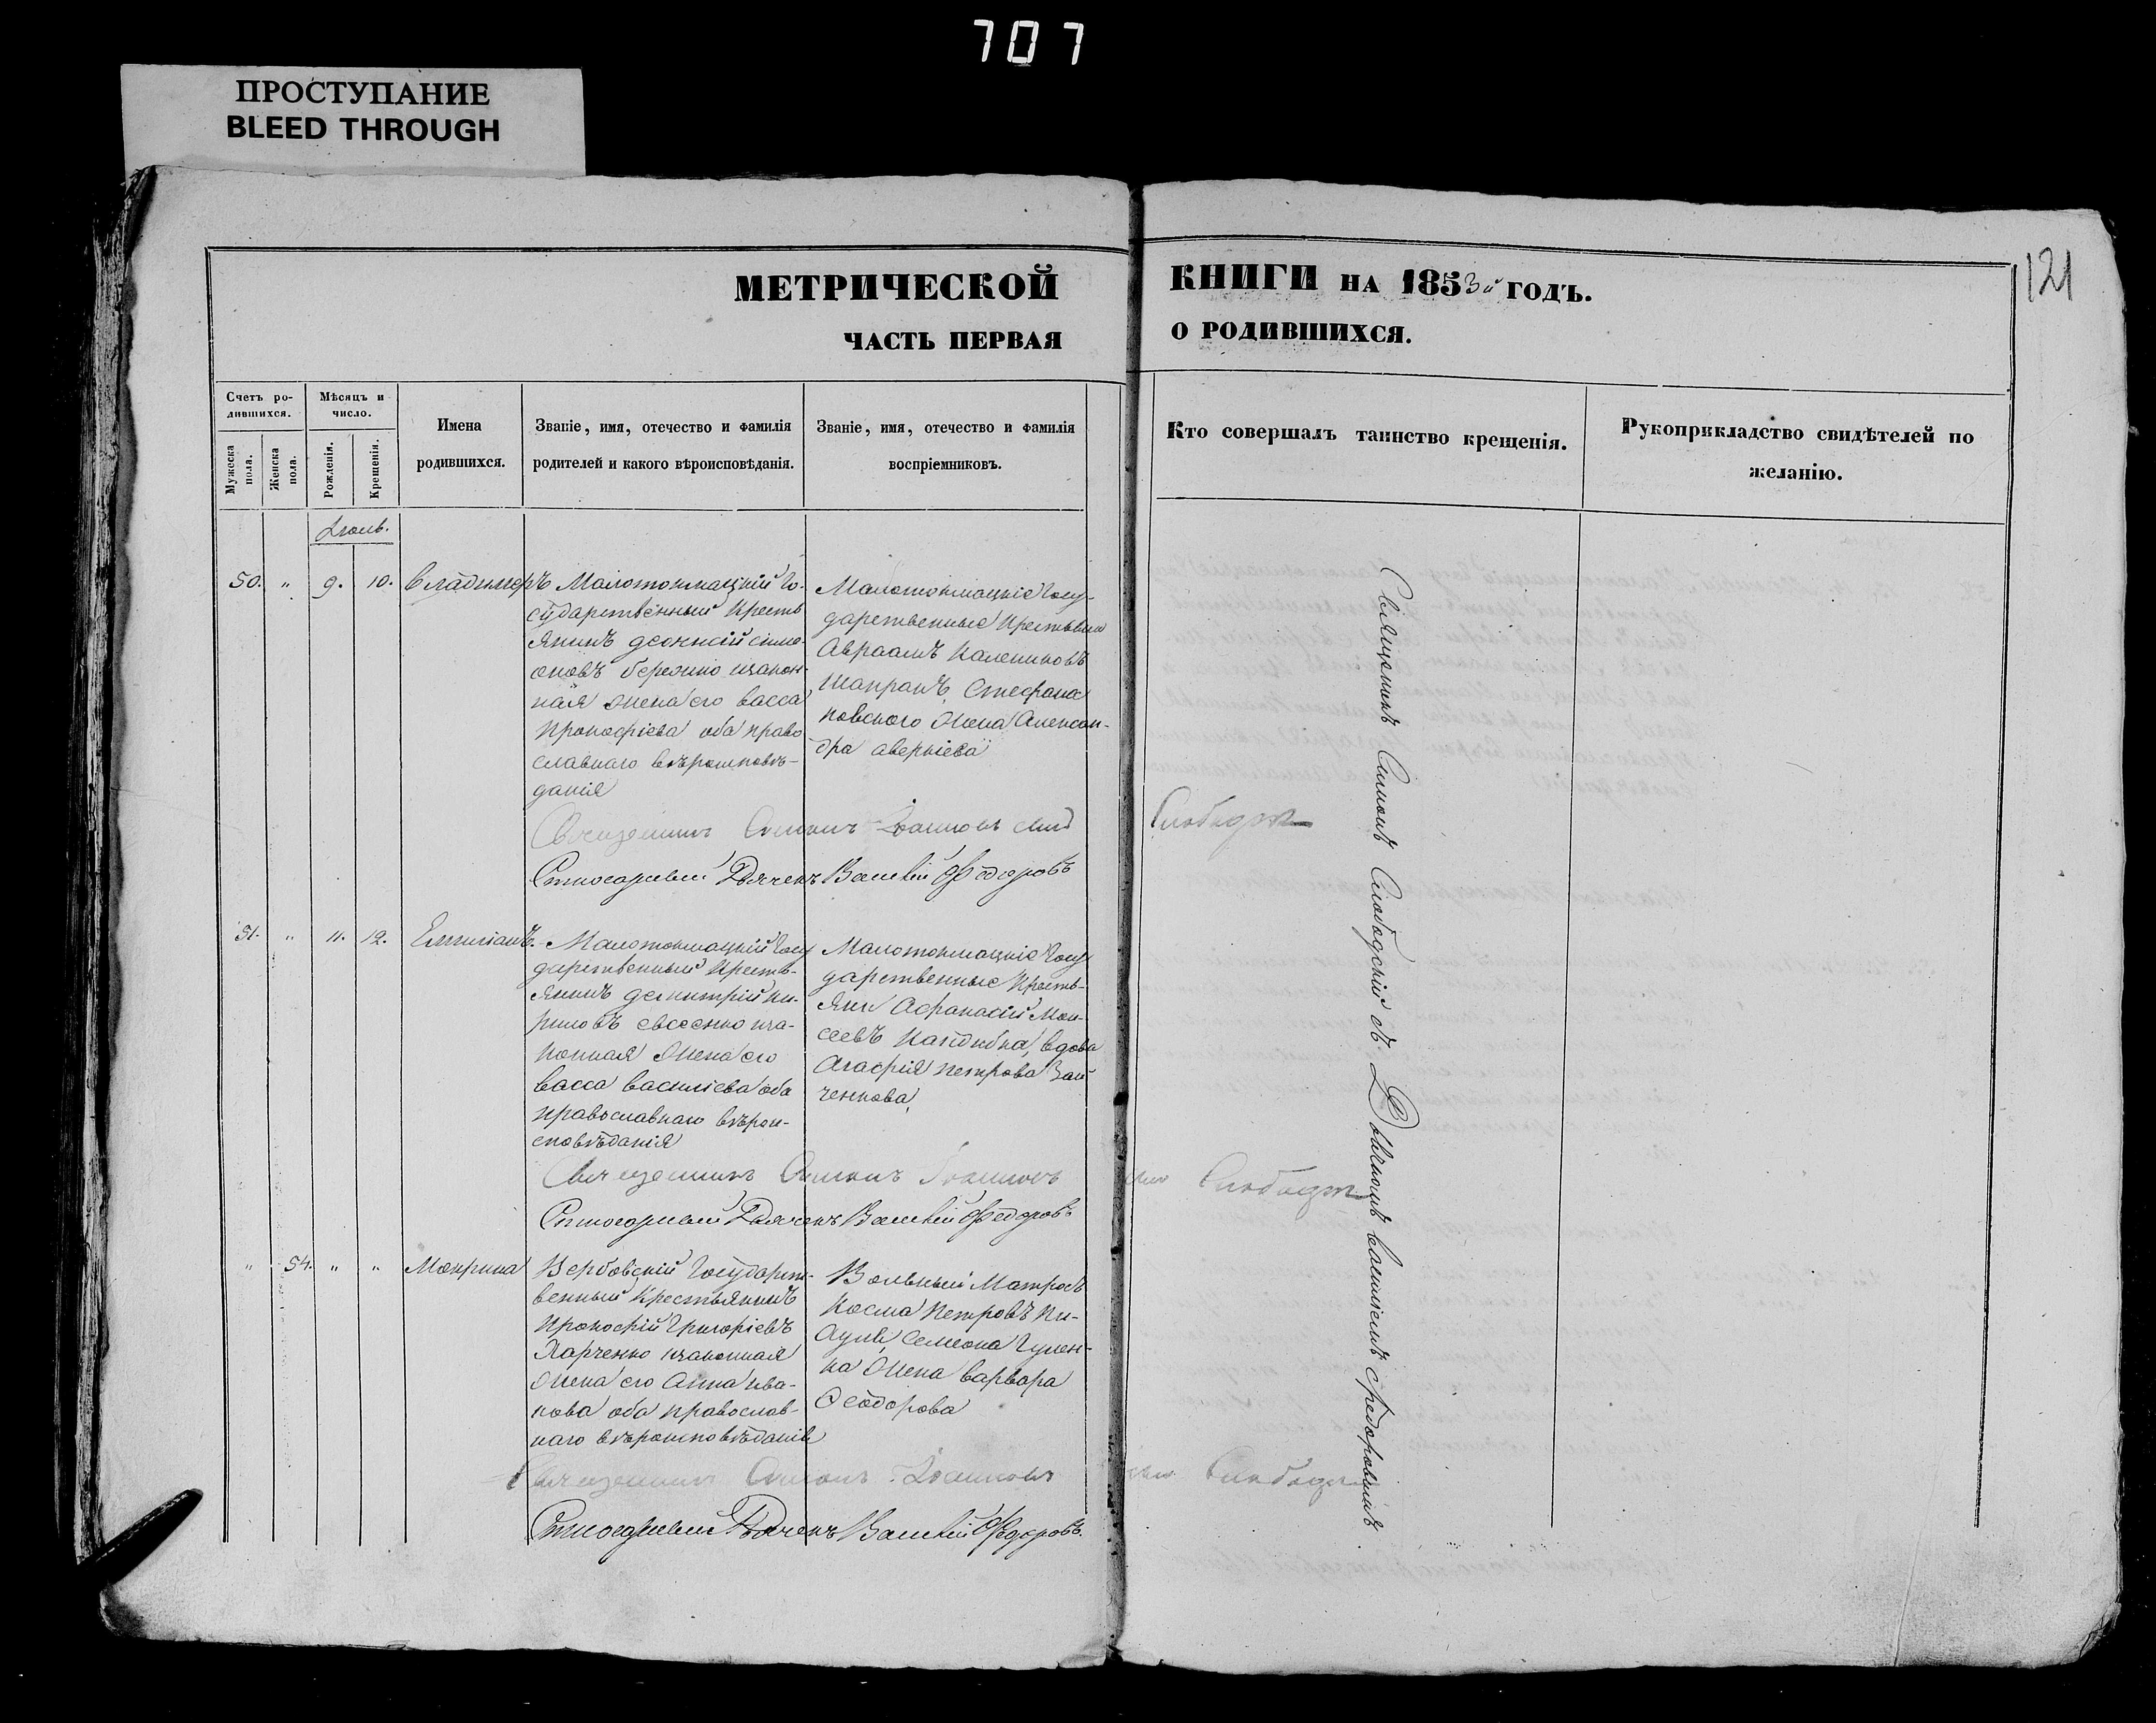 707
ПРОСТУПАНИЕ
BLEED THROUGH
121
МЕТРИЧЕСКОЙ КНИГИ НА 1853й ГОДЪ.
ЧАСТЬ ПЕРВАЯ О РОДИВШИХСЯ.
Счетъ ро-
дившихся.
Мужеска пола.
Женска пола.
Мѣсяцъ и число.
Рожденія.
Крещенія.
Имена
родившихся.
Званіе, имя, отечество и фамилія
родителей и какого вѣроисповѣданія.
Званіе, имя, отечество и фамилія
воспріемниковъ.
Кто совершалъ таинство крещенія.
Рукоприкладство свидѣтелей по
желанію.
Іюль.
50. " 9. 10. Владимеръ
Малотокмацкій Го-
сударственный Кресть
янинъ Деонисій Симо-
оновъ изакон-
ная жена его Васса
Прокофіева оба право
славнаго вѣроисповѣ-
данія
Малотокмацкіе Госу-
дарственные Крестьяни
Авраамъ Калениковъ
Шапранъ, Стефана
жена Алексан-
дра Аверкіева
Священникъ Симонъ Іоанновъ Слободск
Стихарный Дьячекъ Василій Федоровъ
51. " 11. 12. Емиліанъ.
Малотокмацкій Госу
дарственный Кресть-
янинъ Демитрій Ки-
риловъ Евсеенко иза-
конная жена его
Васса Василіева оба
православнаго вѣрои-
споведанія
Малотокмацкіе Госу
дарственные Кресть-
яни Афанасій Мои-
сеевъ вдова
Агафія Петрова Заи
ченкова,
Священникъ Симонъ Іоанновъ Слободск
Стихарный Дьячекъ Василій Федоровъ
" 54. " " Макрина
Вербовскій Государст-
венный Крестьянинъ
Прокофій Григоріевъ
Харченко изаконная
жена его Анна Ива-
нова оба православ-
наго вѣроисповѣданія
Вольный Матросъ
Косма Петровъ
Семеона
жена Варвара
Феодорова
Священникъ Симонъ Іоанновъ Слободск
Стихарный Дьячекъ Василій Федоровъ.
Священникъ Симонъ Слободскій съ Дьячкомъ Василіемъ Федоровымъ